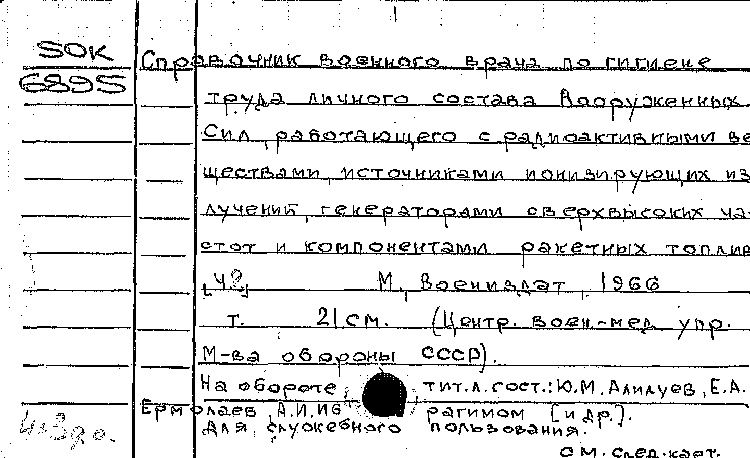 SOK
6895
Справочник военного врача по гигиене
труда личного состава Вооруженных
Сил, работающего с радиоактивными ве
ществами, источниками ионизирующих из
лучений, генераторами сверхвысоких час
стот и компонентами ракетных топлив
М., Воениздат, 1966
т. 21 см. (Центр. воен.-мед. упр.
М-ва обороны СССР).
На обороте тит. л. сост.: Ю.М. Алилуев, Е.А.
Ермолаев, А.И. рагимом [и др.].
Для служебного пользования.
см. след. карт.